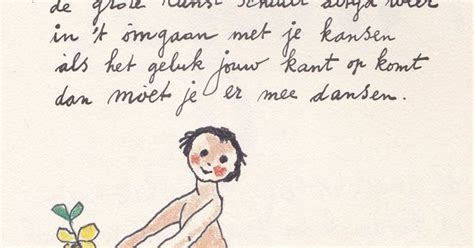 de grote kunst schuilt altijd weer
in 't omgaan met je kansen
als het geluk jouw kant op komt
dan moet je er mee dansen.